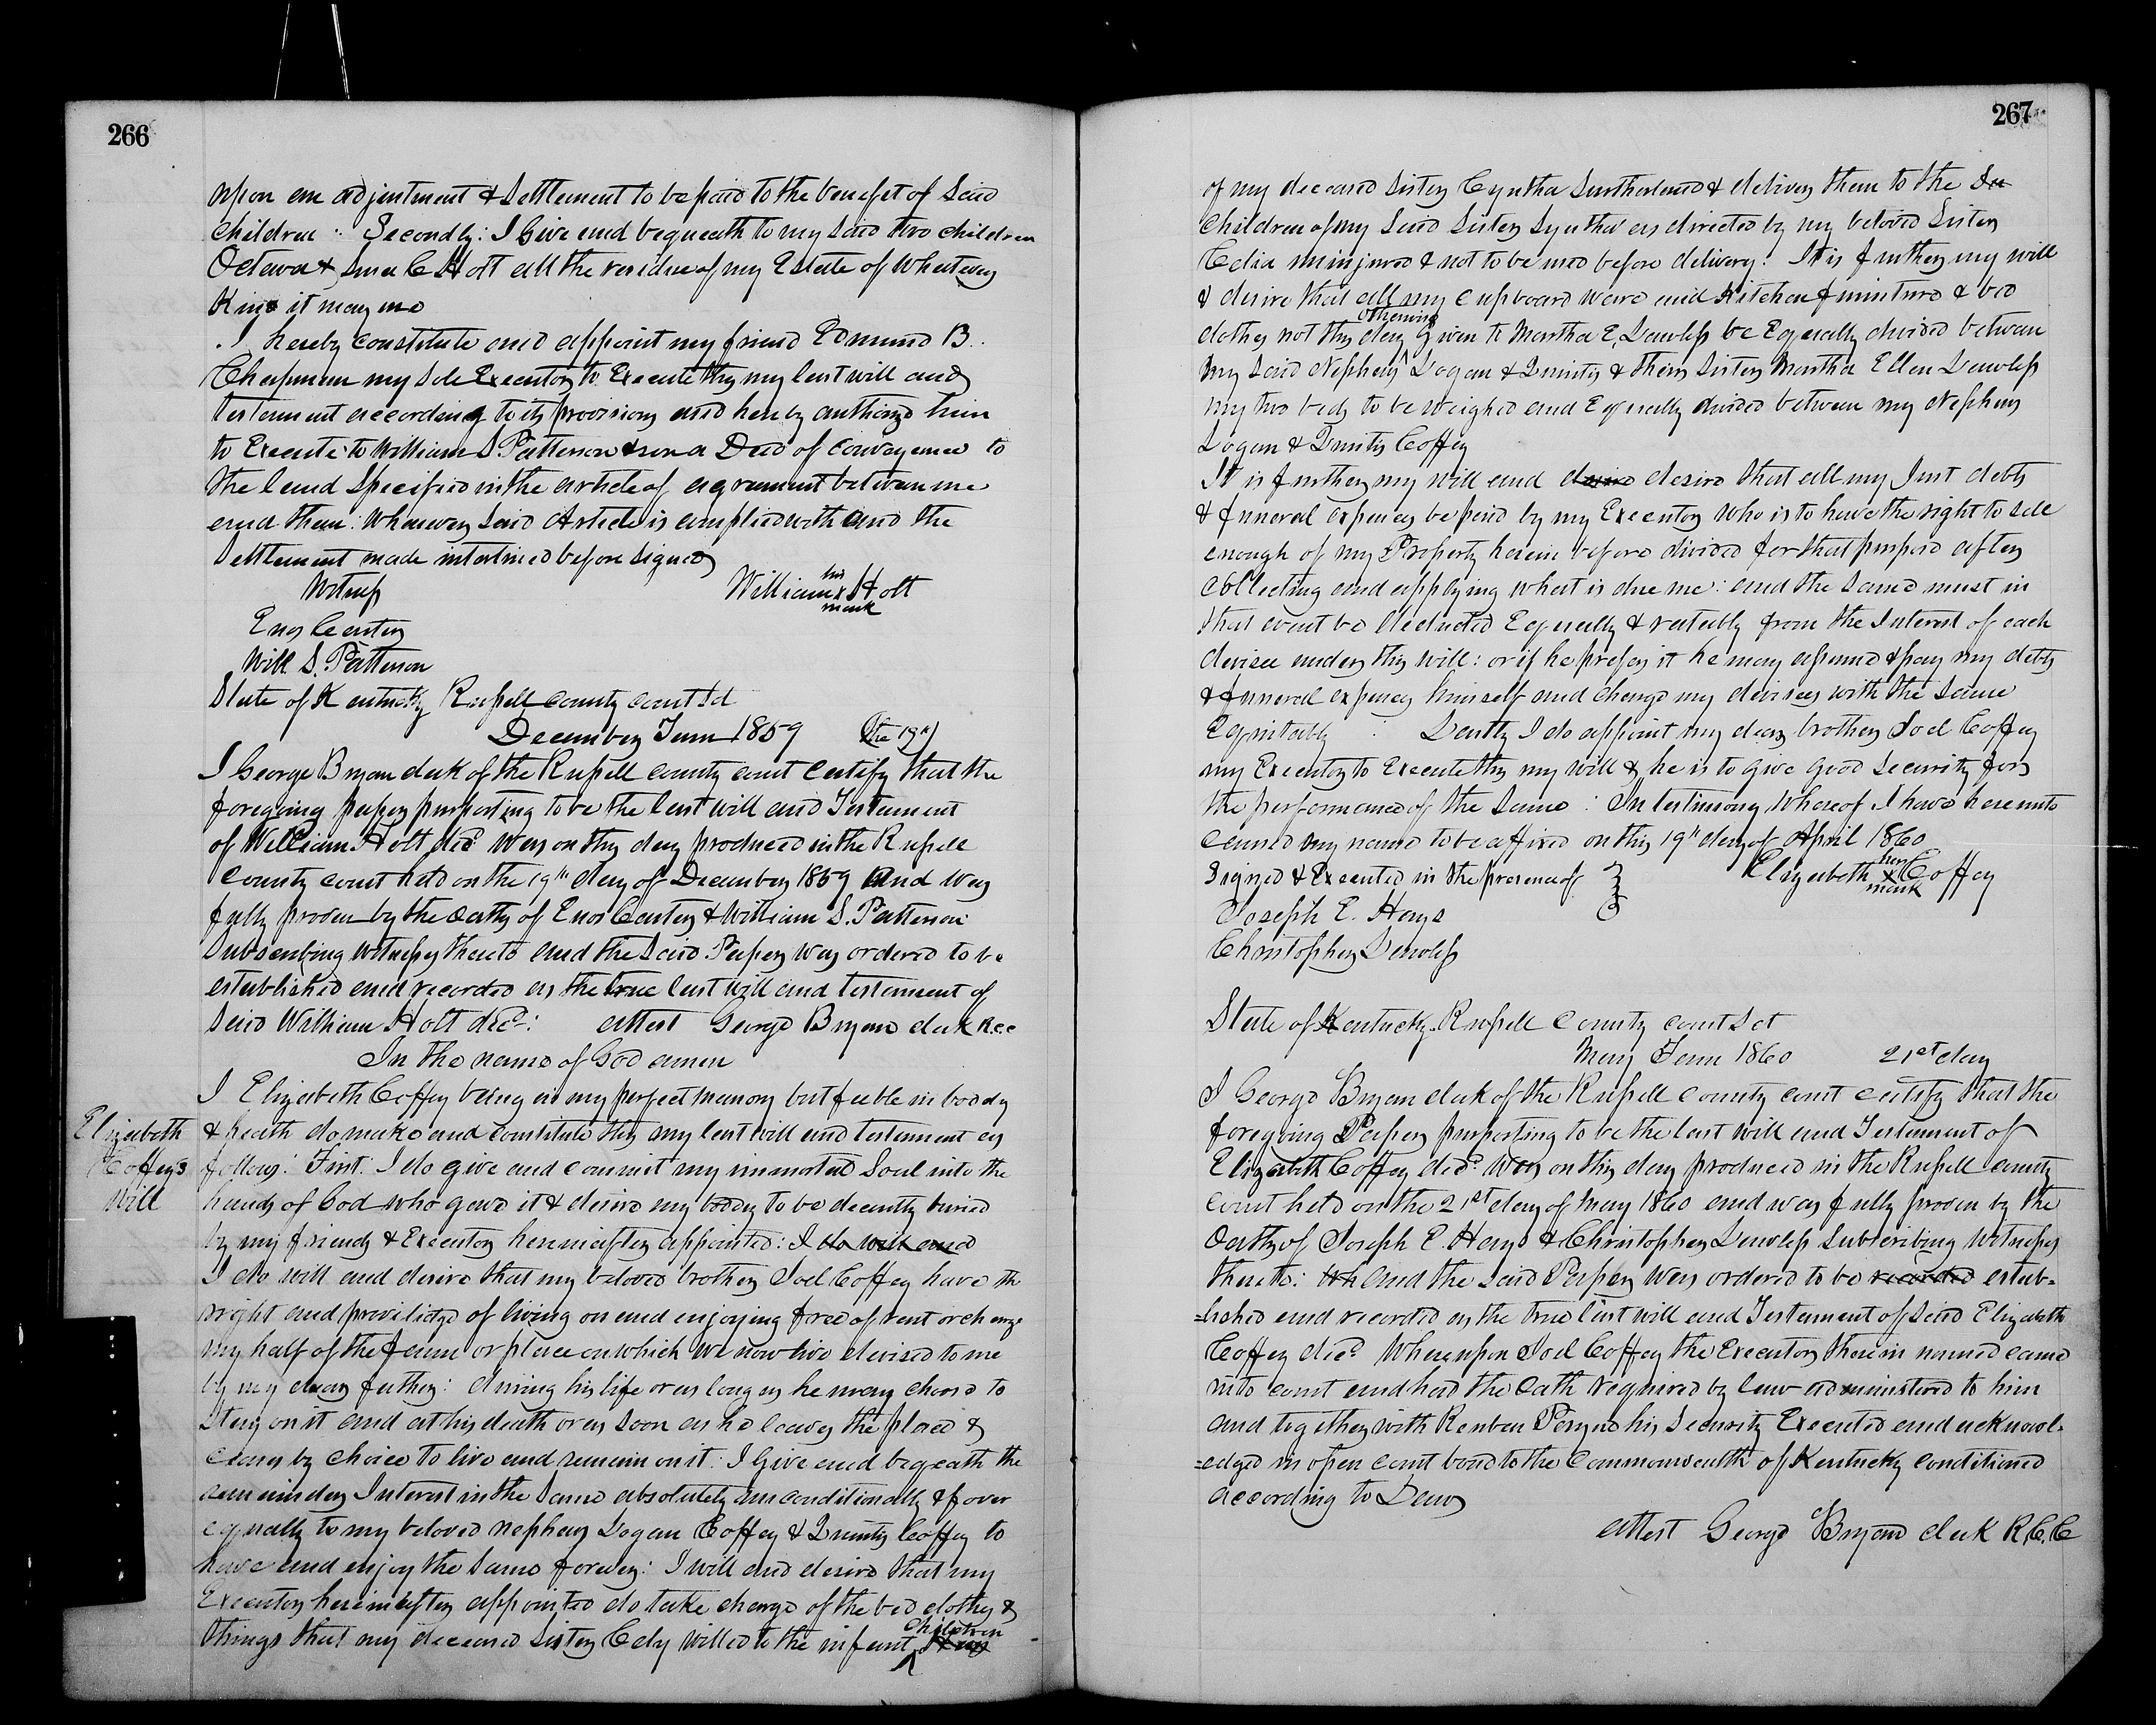 266
upon an adjustment & Settlement to be paid to the benefit of Said
children :- Secondly: I Give and bequeath to my Said two children
Octava & C Holt all the residue of my Estate of Whatever
Kind it may
I hereby constitute and appoint my friend Edmund B.
Chapman my Sole Executor to Execute this my last will and
testament according to its provisions and hereby authorize him
to Execute to William S Patterson & son a Deed of conveyance to
the land Specified in the article of agreement between me
and them: Whenever Said Article is complied with And the
Settlement made interlined before signed
Witness
William his x mark Holt
Enos Carter
Will S. Patterson
State of Kentucky Russell County court Sct
December Term 1859 (the 19th)
I George Bryan clerk of the Russell county court Certify that the
foregoing paper purporting to be the last will and Testament
of William Holt decd was on this day produced in the Russell
County court held on the 19th day of December 1859 And was
fully proven by the Oaths of Enos Carter & William S. Patterson
Subscribing witnesses thereto and the Said Paper was ordered to be
established and recorded as the true last will and testament of
Said William Holt decd: attest George Bryan clerk RCC
In the name of God amen
Elizabeth
Coffey's
Will
I Elizabeth Coffey being in my perfect memory but feeble in boddy
& health do make and constitute this my last will and testament as
follows: First: I do give and commit my immortal Soul into the
hands of God who gave it & desire my boddy to be decently buried
by my friends & Executor hereinafter appointed: I do will and
I do will and desire that my beloved brother Joel Coffey have the
right and priviledge of living on and enjoying free of rent or charge
my half of the farm or place on which we now live devised to me
by my dear father: during his life or as long as he may choose to
stay on it and at his death or as soon as he leaves the place &
ceases by choice to live and remain on it: I Give and beqeath the
remainder Interest in the Same absolutely unconditionally & forever
equally to my beloved nephews Logan Coffey & Coffey to
have and enjoy the same forever: I will and desire that my
Executor hereinafter appointed do take charge of the bed clothes &
things that my deceased Sister Cely willed to the infant Children
267
of my deceased Sister Cyntha Sutherland & deliver them to the
children of my Said Sister Syntha as directed by my beloved Sister
Celia uninjured & not to be used before delivery: It is further my will
& desire that all my cupboard ware and Kitchen furniture & bed
clothes not this day otherwise Given to Martha E. Dunlap be Equally divided between
my Said Nephews Logan & & their Sister Martha Ellen Dunlap
my two beds to be weighed and Equally divided between my Nephews
Logan & Coffey
It is further my will and desire desire that all my Just debts
& funeral expences be paid by my Executor who is to have the right to sell
enough of my Property herein before divided for that purpose after
collecting and applying what is due me: and the same must in
that event be deducted Equally & ratably from the Interest of each
devisee under this will: or if he prefers it he may assume & pay my debts
& funeral expences himself and charge my devisees with the same
Equitably Lastly I do appoint my dear brother Joel Coffey
my Executor to Execute this my will & he is to give good Security for
the performance of the same: In testimony Whereof I have hereunto
caused my name to be affixed on this 19th day of April 1860
Signed & Executed in the presence of
Elizabeth her x mark Coffey
Joseph E. Hays
Christopher Dunlap
State of Kentucky Russell County court Sct
May Term 1860 21st day
I George Bryan clerk of the Russell county court certify that the
foregoing Paper purporting to be the last will and Testament of
Elizabeth Coffey decd. was on this day produced in the Russell county
court held on the 21st day of May 1860 and was fully proven by the
Oaths of Joseph E. Hays & Christopher Dunlap Subscribing Witnesses
thereto: and the said Paper was ordered to be recorded estab-
=lished and recorded as the true last will and Testament of said Elizabeth
Coffey decd Whereupon Joel Coffey the Executor therein named came
into court and had the Oath required by law administered to him
and together with Reuben Payne his Security Executed and acknowl-
=edged in open court bond to the Commonwealth of Kentucky conditioned
according to Law
attest George Bryan clerk R.C.C